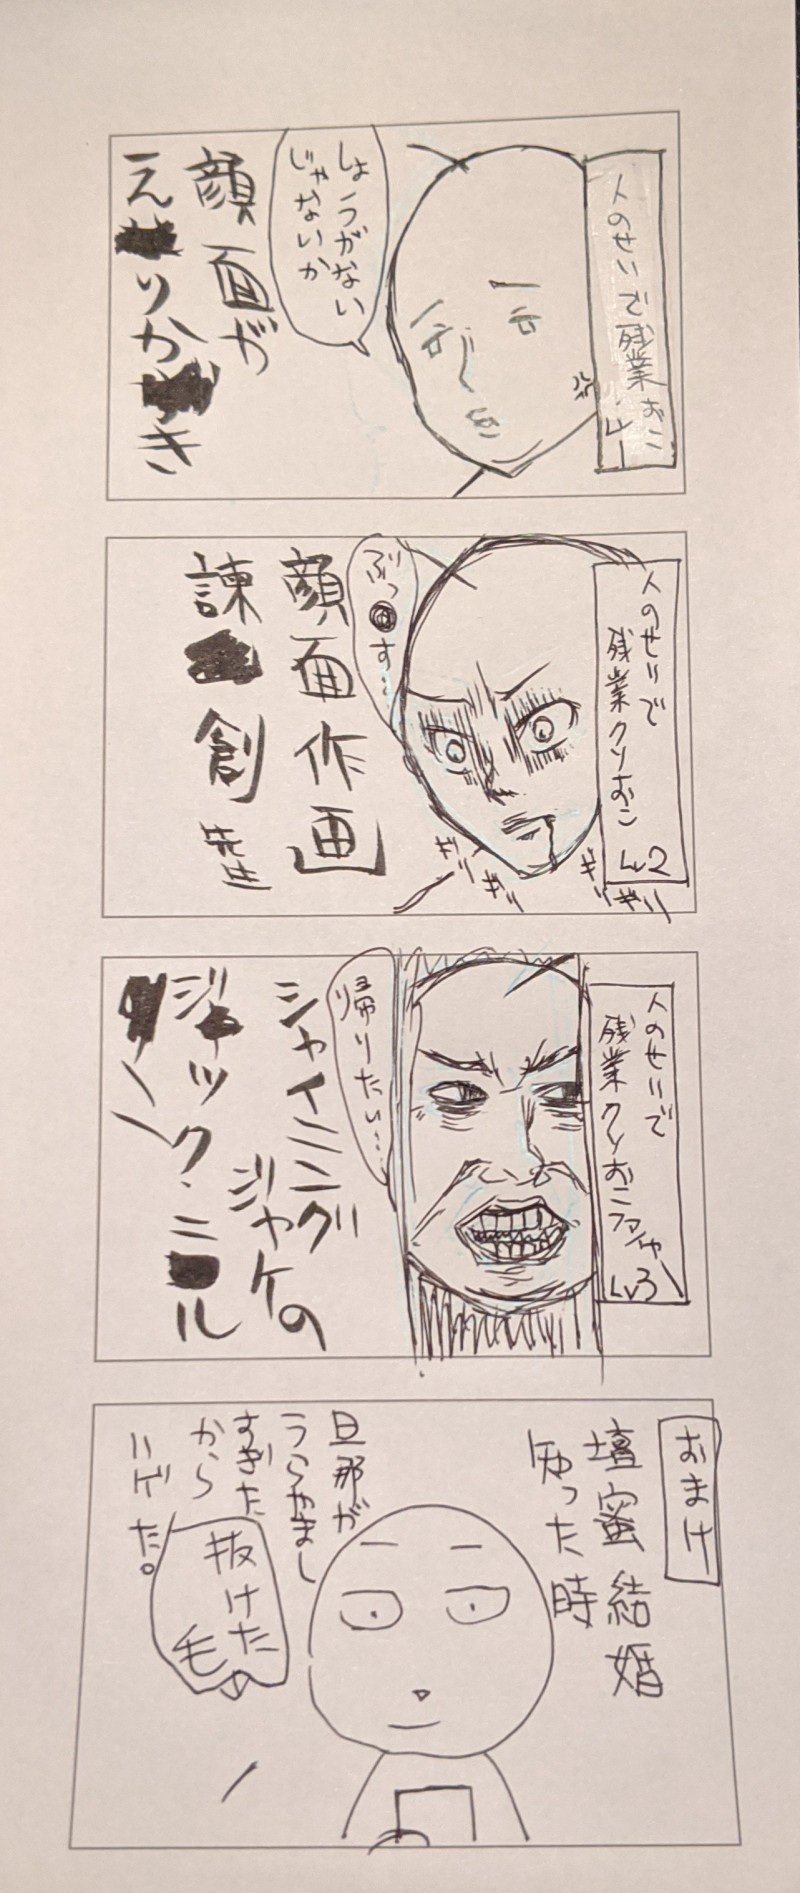 人のせいで残業おこ
Lv1
しょうがない
じゃないか
顔面が
え■りか■き
人のせいで
残業クソおこ
Lv2
ぶっ●す…
ぎりぎり
ぎりぎり
顔面作画
諌■創先生
人のせいで
残業クソおこファイヤー
Lv3
帰りたい…
シャイニング
ジャケの
ジャック・ニ■ル
■ソン
おまけ
壇蜜結婚
知った時
旦那が
うらやまし
すぎた
から
ハゲた。
抜けた
毛